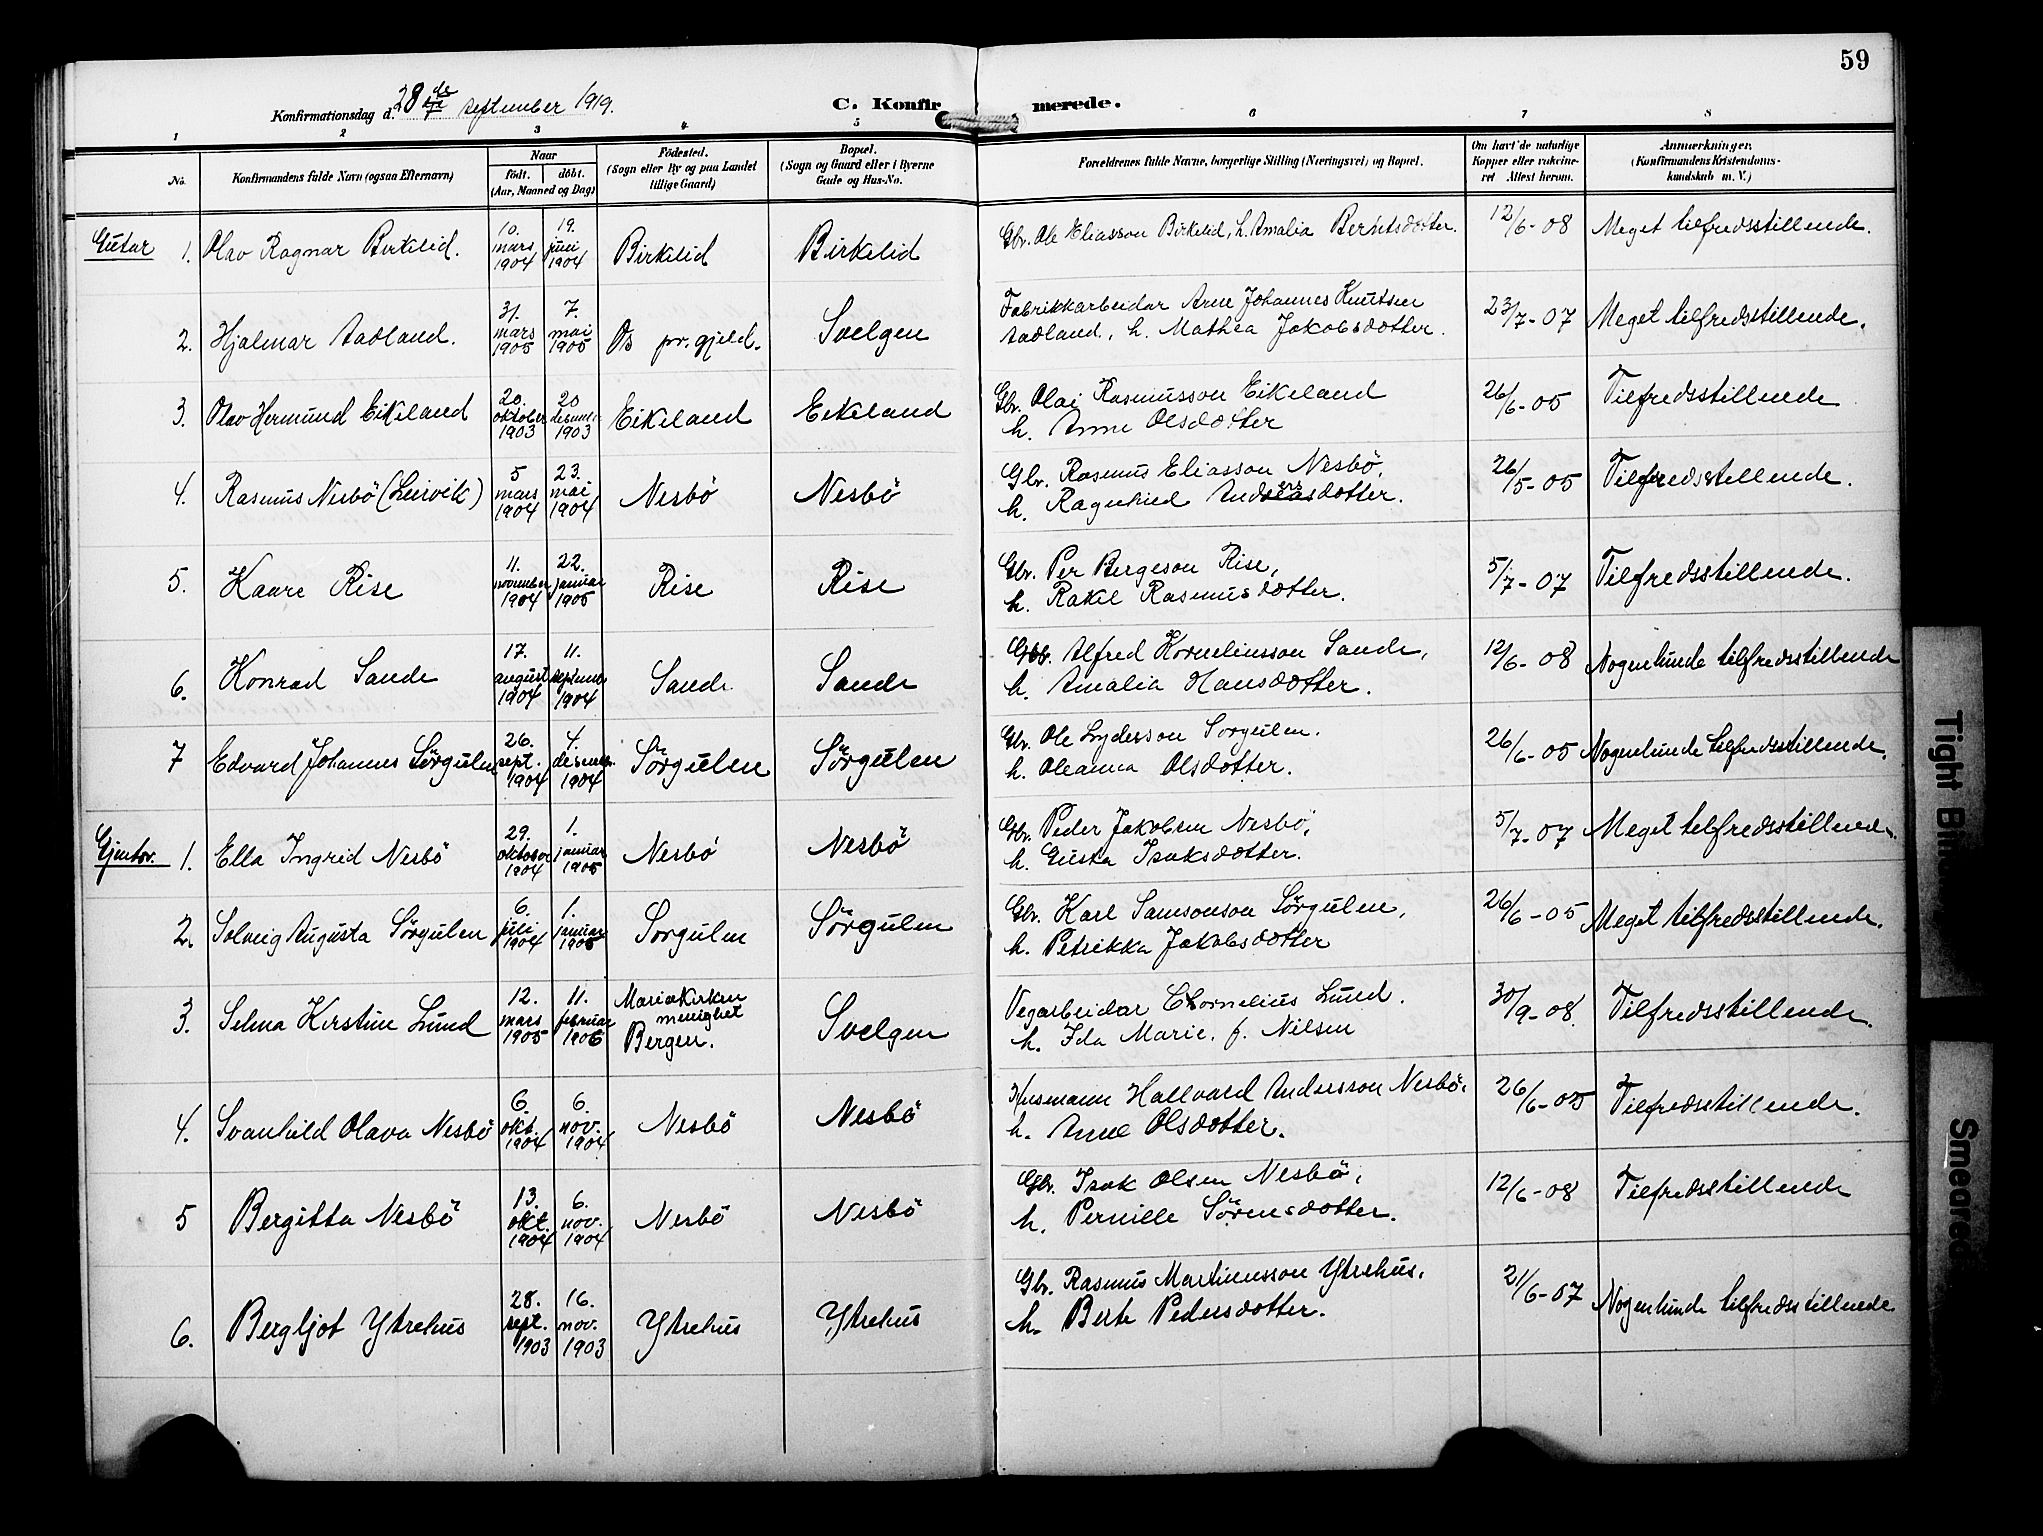 59
Konfirmationsdag d. 28de september 1919.
C. Konfirmerede.
1 2 3 4 5 6 7 8
No. Konfirmandens fulde Navn (ogsaa Efternavn) Naar født. døbt. (Aar, Maaned og Dag) Fødested. (Sogn eller By og paa Landet tillige Gaard) Bopæl. (Sogn og Gaard eller i Byerne Gade og Hus-No. Forældrenes fulde Navne, borgerlige Stilling (Næringsvei) og Bopæl. Om havt de naturlige Kopper eller vakcineret Attest herom. Anmerkninger. (Konfirmandens Kristendomskundskab m. V.)
Gutar 1. Olav Ragnar Birkelid. 10. mars 1904 19. juni 1904 Birkelid Birkelid Gbr. Ole Eliasson Birkelid, h. Amalia Berntsdotter. 12/6-08 Meget tilfredsstillende.
2. Hjalmar Aadland. 31. mars 1905 7. mai 1905 Os pr.gjeld. Svelgen Fabrikkarbeidar Arne Johannes Knutsen Aadland, h. Mathea Jakobsdotter. 23/7-07 Meget tilfredsstillende.
3. Olav Hermund Eikeland 20. oktober 1903 20 desem. 1903 Eikeland Eikeland Gbr. Olai Rasmusson Eikeland h. Anne Olsdotter 26/6-05 Tilfredsstillende
4. Rasmus Nesbö (Leirvik) 5 mars 1904 23. mai 1904 Nesbö Nesbö Gbr. Rasmus Eliasson Nesbö, h. Ragnhild Andersdotter. 26/5-05 Tilfredsstillende.
5. Kaare Rise 11. november 1904 22. januar 1905 Rise Rise Gbr. Per Bergeson Rise, h. Rakel Rasmusdotter. 5/7-07 Tilfredsstillende.
6. Konrad Sande 17. august 1904 11. septemb. 1904 Sande Sande Gbr. Alfred Korneliusson Sande, h. Amalia Hansdotter. 12/6-08 Nogenlunde tilfredsstillende
7 Edvard Johannes Sörgulen 26. sept. 1904 4. desemb. 1904 Sörgulen Sörgulen Gbr. Ole Lyderson Sorgulen. h. Oleanna Olsdotter. 26/6-05 Nogenlunde tilfredsstillende.
Gjentor. 1. Ella Ingrid Nesbö 29. oktober 1904 1. januar 1905 Nesbö Nesbö Gbr. Peder Jakobsen Nesbö, h. Gusta Isaksdotter. 5/7-07 Meget tilfredsstillende.
2. Solveig Augusta Sörgulen 6. juli 1904 1. januar 1905 Sorgulen Sörgulen Gbr. Karl Samsonson Sörgulen, h. Petrikka Jakobsdotter 26/6-05 Meget tilfredsstillende.
3. Selma Kirstine Lund 12. mars 1905 11. februar 1906 Mariakirken menighet Bergen. Svelgen Vegarbeidar Chornelius Lund. h. Ida Marie. f. Nilsen 30/9-08. Tilfredsstillende.
4. Svanhild Olava Nesbö 6. okt. 1904 6. nov. 1904 Nesbö Nesbö Husmann Hallvard Andersson Nesbö. h. Anne Olsdotter. 26/6-05 Tilfredsstillende.
5 Bergitta Nesbö 13. okt. 1904 6. nov. 1904 Nesbö Nesbö Gbr. Isak Olsen Nesbö, h. Pernille Sörensdotter. 12/6-08 Tilfredsstillende
6. Bergljot Ytrehus 28. sept. 1903 16. nov. 1903 Ytrehus Ytrehus Gbr. Rasmus Martinusson Ytrehus. h. Berte Pedersdotter. 21/6-07 Nogenlunde tilfredsstillende
Tight Bin
Smeared